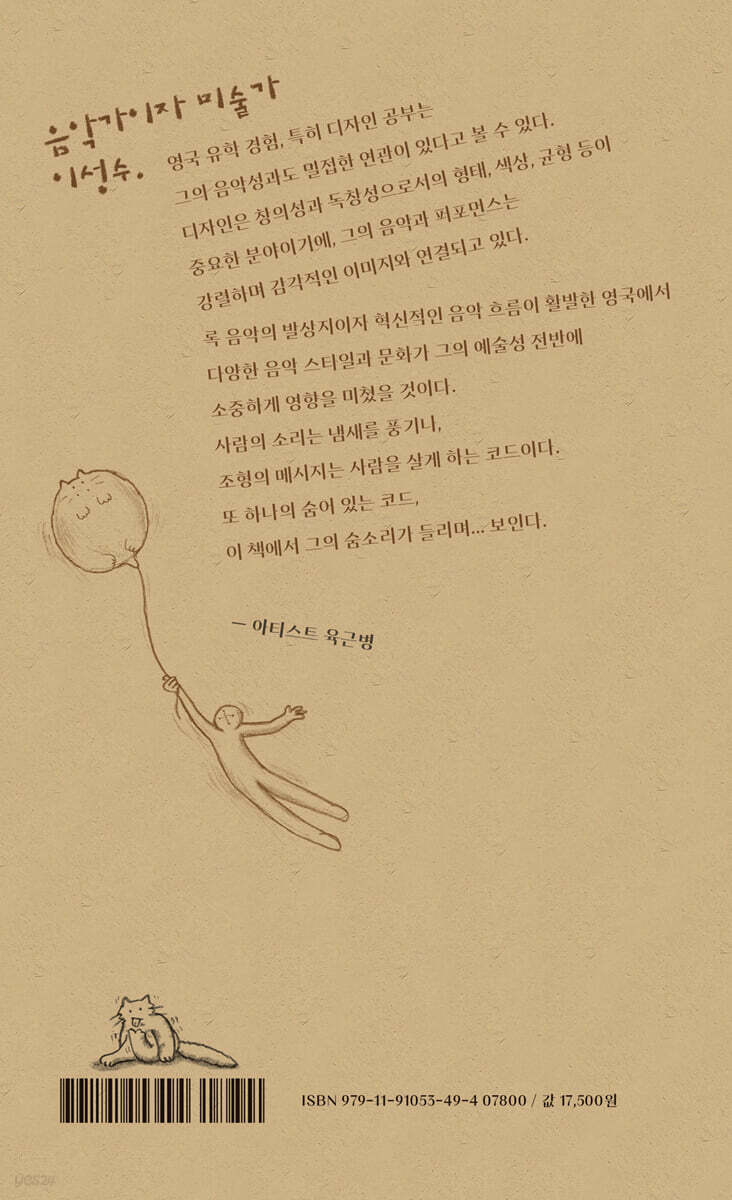 음악가이자 미술가
이성수.
영국 유학 경험, 특히 디자인 공부는
그의 음악성과도 밀접한 연관이 있다고 볼 수 있다.
디자인은 창의성과 독창성으로서의 형태, 색상, 균형 등이
중요한 분야이기에, 그의 음악과 퍼포먼스는
강렬하며 감각적인 이미지와 연결되고 있다.
록 음악의 발상지이자 혁신적인 음악 흐름이 활발한 영국에서
다양한 음악 스타일과 문화가 그의 예술성 전반에
소중하게 영향을 미쳤을 것이다.
사람의 소리는 냄새를 풍기나,
조형의 메시지는 사람을 살게 하는 코드이다.
또 하나의 숨이 있는 코드,
이 책에서 그의 숨소리가 들리며... 보인다.
– 아티스트 육근병
ISBN 979-11-91053-49-4 07800 / 값 17,500원
yes24